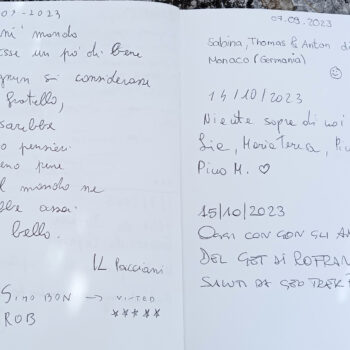 07-2023
mondo
esse un po' di bene
ognun si considerasse
fratello,
sarebbe
pensieri
meno pene
il mondo ne
assai
bello.
IL Pacciani
SIMO BON → VISTED
ROB *****
07.09.2023
Sabina, Thomas & Anton di
Monaco (Germania)
☺
14/10/2023
Niente sopra di noi
Lia, Maria Teresa,
Pino M. ♡
15/10/2023
OGGI CON GLI
DEL GET DI ROFRANO
SALUTI DA GEO TREK